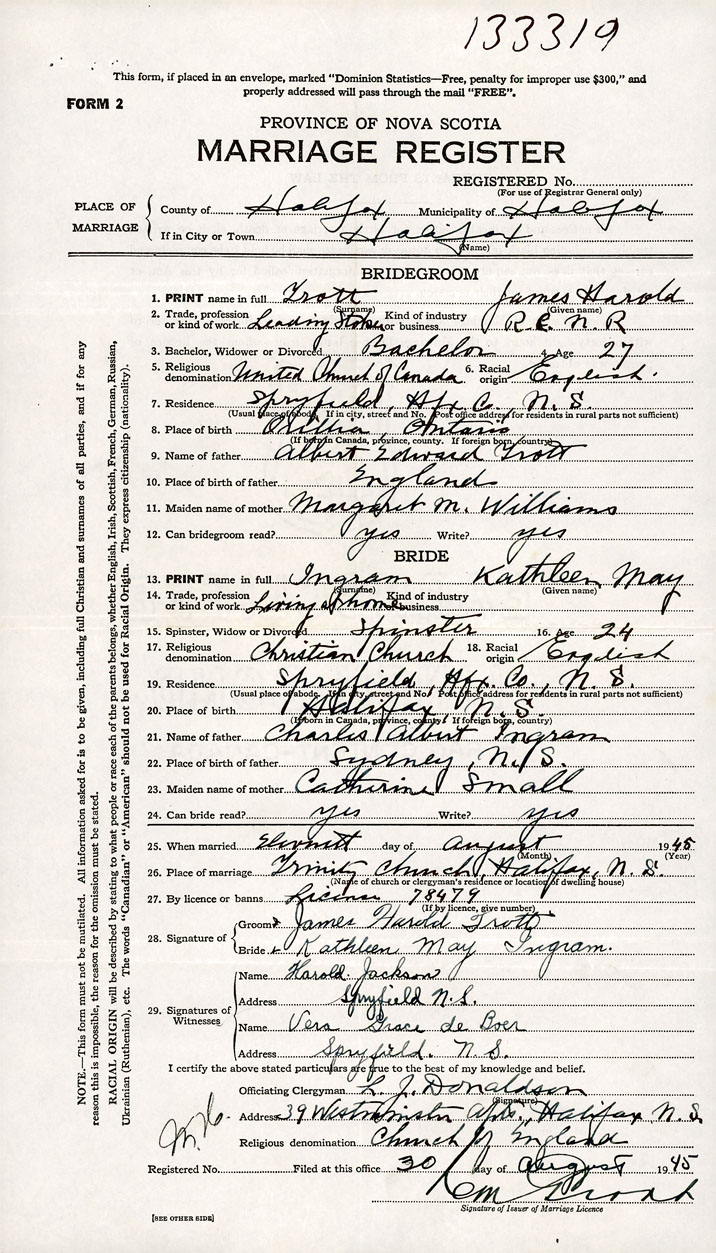 133319
This form, if placed in an envelope, marked "Dominion Statistics—Free, penalty for improper use $300," and
properly addressed will pass through the mail "FREE".
FORM 2
PROVINCE OF NOVA SCOTIA
MARRIAGE REGISTER
REGISTERED No.
(For use of Registrar General only)
PLACE OF MARRIAGE
County of Halifax Municipality of Halifax
If in City or Town Halifax
(Name)
BRIDEGROOM
1. PRINT name in full Trott James Harold
(Surname) (Given name)
2. Trade, profession or kind of work Leading Stoker Kind of industry or business R.C.N.R
3. Bachelor, Widower or Divorced Bachelor 4. Age 27
5. Religious denomination United Church of Canada 6. Racial origin English.
7. Residence Spryfield Hfx. Co., N.S.
(Usual place of abode. If in city, street and No. Post office address for residents in rural parts not sufficient)
8. Place of birth Orillia, Ontario
(If born in Canada, province, county. If foreign born, country)
9. Name of father Albert Edward Trott
10. Place of birth of father England
11. Maiden name of mother Margaret M. Williams
12. Can bridegroom read? yes Write? yes
BRIDE
13. PRINT name in full Ingram Kathleen May
(Surname) (Given name)
14. Trade, profession or kind of work Living at home Kind of industry or business
15. Spinster, Widow or Divorced Spinster 16. Age 24
17. Religious denomination Christian Church 18. Racial origin English
19. Residence Spryfield, Hfx. Co., N.S.
(Usual place of abode. If in city, street and No. Post office address for residents in rural parts not sufficient)
20. Place of birth Halifax, N.S.
(If born in Canada, province, county. If foreign born, country)
21. Name of father Charles Albert Ingram
22. Place of birth of father Sydney, N.S.
23. Maiden name of mother Catherine Small
24. Can bride read? yes Write? yes
25. When married Eleventh day of August 1945
(Month) (Year)
26. Place of marriage Trinity Church, Halifax, N.S.
(Name of church or clergyman's residence or location of dwelling house)
27. By licence or banns License 78479
(If by licence, give number)
28. Signature of
Groom James Harold Trott
Bride Kathleen May Ingram.
29. Signatures of Witnesses
Name Harold Jackson
Address Spryfield N.S.
Name Vera Grace de Boer
Address Spryfield. N.S.
I certify the above stated particulars are true to the best of my knowledge and belief.
Officiating Clergyman L. J. Donaldson
(Signature)
Address 39 Westminster Apts., Halifax, N.S.
Religious denomination Church of England
Registered No. Filed at this office 30 day of August 1945
Signature of Issuer of Marriage Licence
[SEE OTHER SIDE]
NOTE.—This form must not be mutilated. All information asked for is to be given, including full Christian and surnames of all parties, and if for any
reason this is impossible, the reason for the omission must be stated.
RACIAL ORIGIN will be described by stating to what people or race each of the parents belongs, whether English, Irish, Scottish, French, German Russian,
Ukrainian (Ruthenian), etc. The words "Canadian" or "American" should not be used for Racial Origin. They express citizenship (nationality).